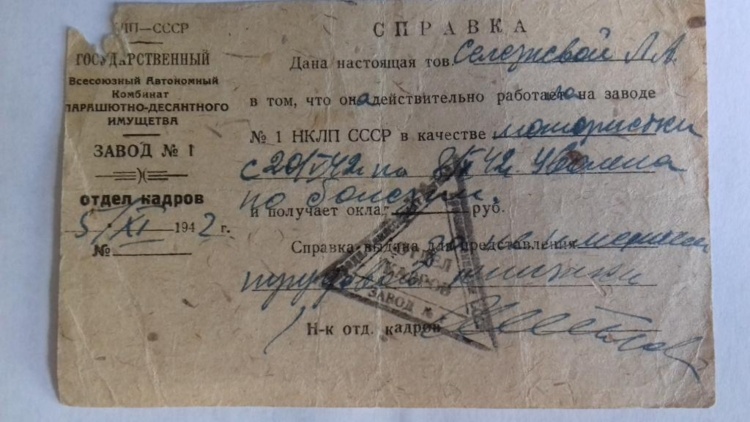 ЛП—СССР
ГОСУДАРСТВЕННЫЙ
Всесоюзный Автономный
Комбинат
ПАРАШЮТНО-ДЕСАНТНОГО
ИМУЩЕСТВА
ЗАВОД № 1
ОТДЕЛ КАДРОВ
5/XI 1942 г.
№
СПРАВКА
Дана настоящая тов. Селезневой Л. А.
в том, что она действительно работала на заводе
№ 1 НКЛП СССР в качестве мотористки
с 20/V 42 г. по 42 г. Уволена
по болезни.
и получает оклад руб.
Справка выдана для представления
трудовой книжки
Н-к отд. кадров
ОТДЕЛ
КАДРОВ
ЗАВОД №